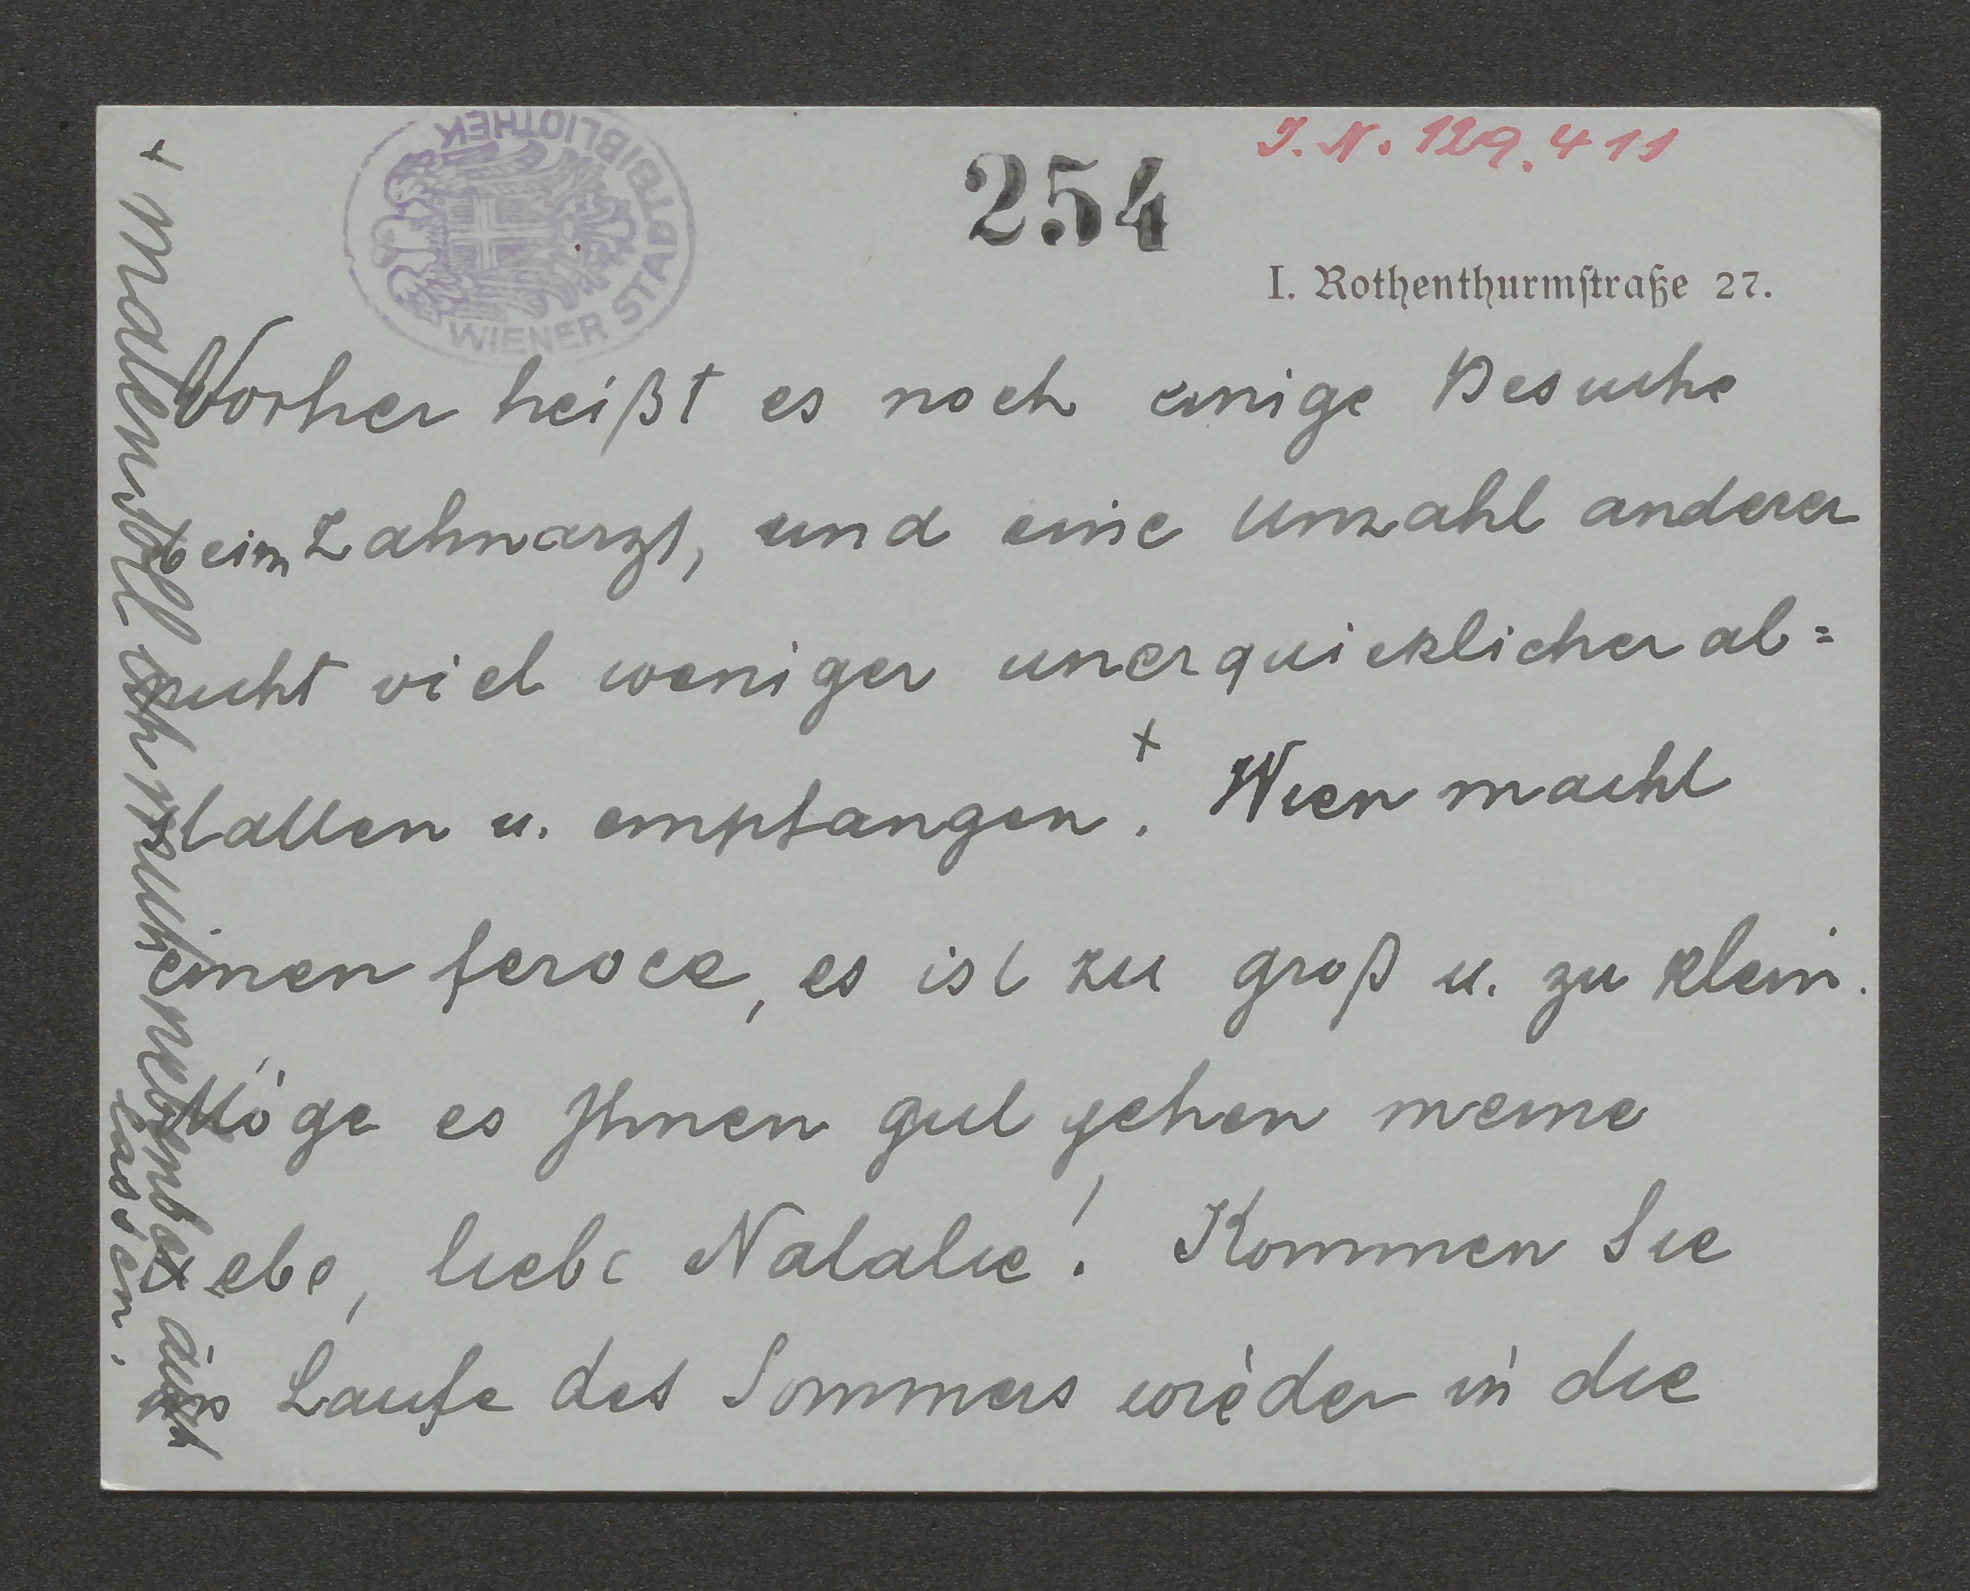 I. N. 129.411
254
WIENER STADTBIBLIOTHEK
I. Rothenthurmſtraße 27.
Vorher heißt es noch einige Besuche
beim Zahnarzt, und eine Unzahl anderer
nicht viel weniger unerquicklicher ab=
statten u. empfangen +. Wien macht
einen feroce, es ist zu groß u. zu klein.
Möge es Ihnen gut gehen meine
liebe, liebe Natalie! Kommen Sie
im Laufe des Sommers wieder in die
+ Malen soll ich mich nebstbei auch
lassen.